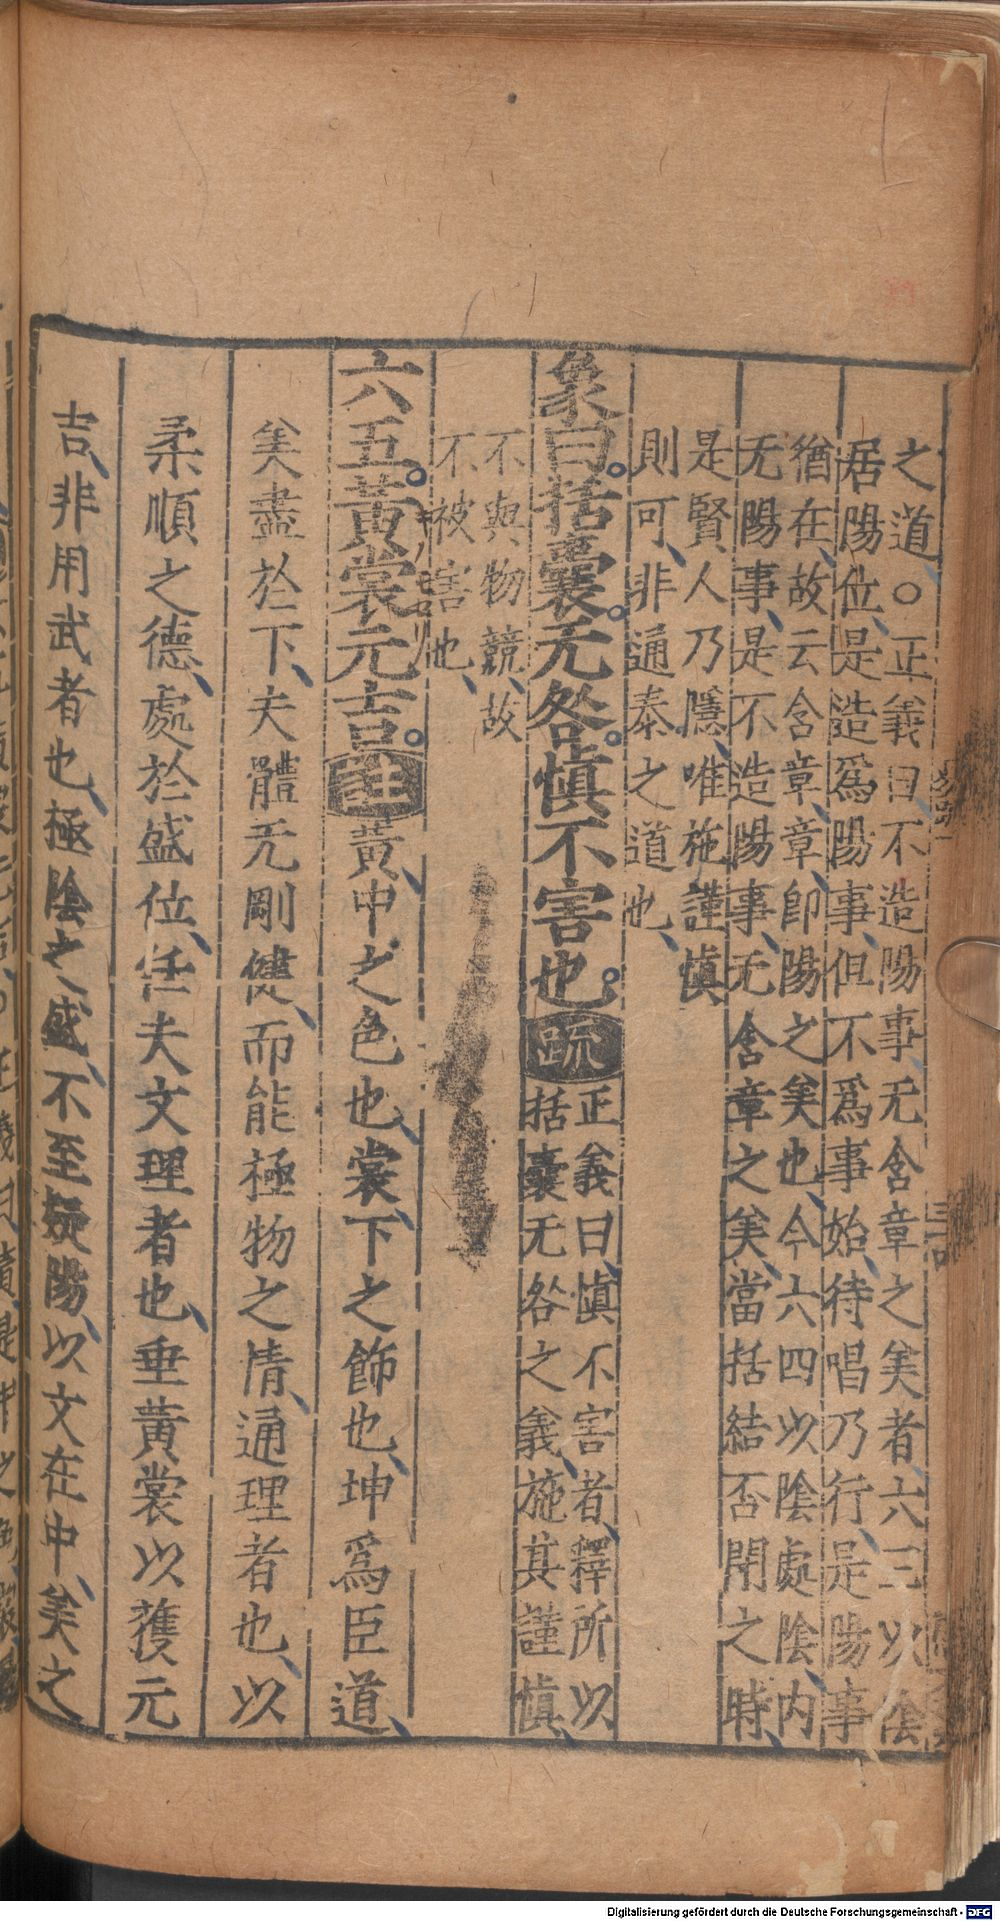 之道○正義曰不造陽事无含章之美者六三以陰
居陽位是造爲陽事但不爲事始待唱乃行是陽事
猶在故云含章章卽陽之美也今六四以陰處陰内
无陽事是不造陽事无含章之美當括結否閉之時
是賢人乃隱唯施謹慎
則可非通泰之道也
象曰括囊无咎慎不害也 疏 正義曰慎不害者釋所以
括囊无咎之義施其謹慎
不與物競故
不被害也
六五黃裳元吉 註 黃中之色也裳下之飾也坤爲臣道
美盡於下夫體无剛健而能極物之情通理者也以
柔順之德處於盛位任夫文理者也垂黃裳以獲元
吉非用武者也極陰之盛不至疑陽以文在中美之
Digitalisierung gefördert durch die Deutsche Forschungsgemeinschaft - DFG